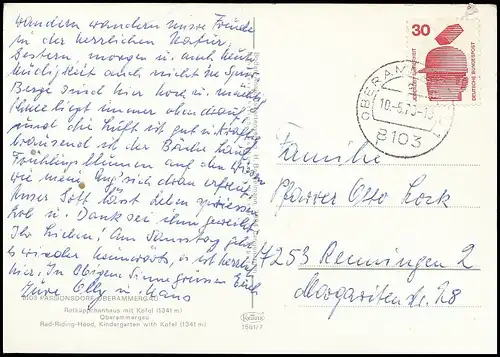 wandern wandern unsre Freude
in der herrlichen Natur,
Gestern, morgen u. auch heute
Müdigkeit auch nicht die Spur
Berge sind hier hoch u. mächtig
Schnee liegt immer oben drauf
und die Luft ist gut u. kräftig
brausend ist der Bäche Lauf
Frühlingsblumen auf den Wiesen
wie mein Aug' sich dran erfreut,
Unser Gott lässt Leben spriessen
Lob u. Dank sei ihm geweiht
Ihr Lieben! Am Samstag geht
es wieder heimwärts, es ist herrlich
hier. In Obigem Sinne grüssen Euch
Eure Elly u. Hans
8103 PASSIONSDORF OBERAMMERGAU
Rotkäppchenhaus mit Kofel (1341 m)
Oberammergau
Red-Riding-Hood, Kindergarten with Kofel (1341 m)
Krüger
1561/7
30
DEUTSCHE BUNDESPOST
OBERAM
10.-5.73-
8103
Familie
Pfarrer Otto Lock
7253 Renningen 2
Margaretenstr. 28